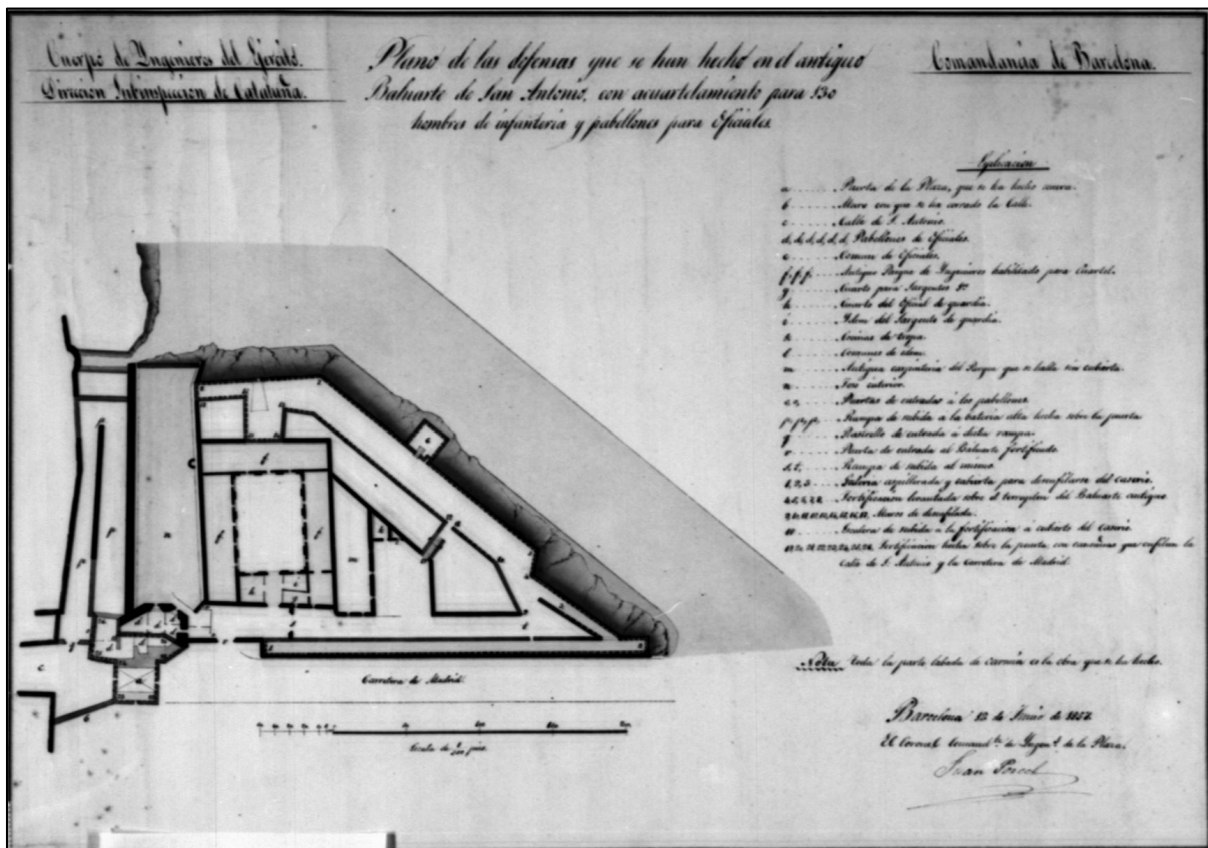 Cuerpo de Yngenieros del Ejército.
Direccion Subinspeccion de Cataluña.
Plano de las defensas que se han hecho en el antiguo
Baluarte de San Antonio, con acuartelamiento para 130
hombres de infanteria y pabellones para Oficiales.
Comandancia de Barcelona.
Esplicacion
a Puerta de la Plaza, que se ha hecho nueva.
b Muro con que se ha cerrado la Calle.
c Calle de S. Antonio.
d, d, d, d, d, d, Pabellones de Oficiales.
e Comun de Oficiales.
f, f, f. Antiguo Parque de Yngenieros habilitado para Cuartel.
g Cuarto para Sargentos
h Cuarto del Oficial de guardia.
i Ydem del Sargento de guardia.
k Cocinas de tropa.
l Comunes de idem.
m Antigua carpinteria del Parque que se halla sin cubierta.
n Foso interior.
o, o, Puertas de entradas á los pabellones.
p, p, p. Rampa de subida a la bateria alta hecha sobre la puerta
q Rastrillo de entrada á dicha rampa.
r Puerta de entrada al Baluarte fortificado.
s, t, Rampa de subida al mismo.
1, 2, 3 Galeria aspillerada y cubierta para desenfilarse del caserio.
Fortificacion levantada sobre el terraplen del Baluarte antiguo
Muros de desenfilada.
Escalera de subida á la fortificacion á cubierto del Caserio
Fortificacion hecha sobre la puerta con que enfilan la
Calle de S. Antonio y la Carretera de Madrid.
Carretera de Madrid.
Escala de pies
Nota Toda la parte labada de carmin es la obra que se ha hecho.
Barcelona 12 de Junio de 1857
El Coronel Comand.te de Yngen.s de la Plaza.
Juan Porcel